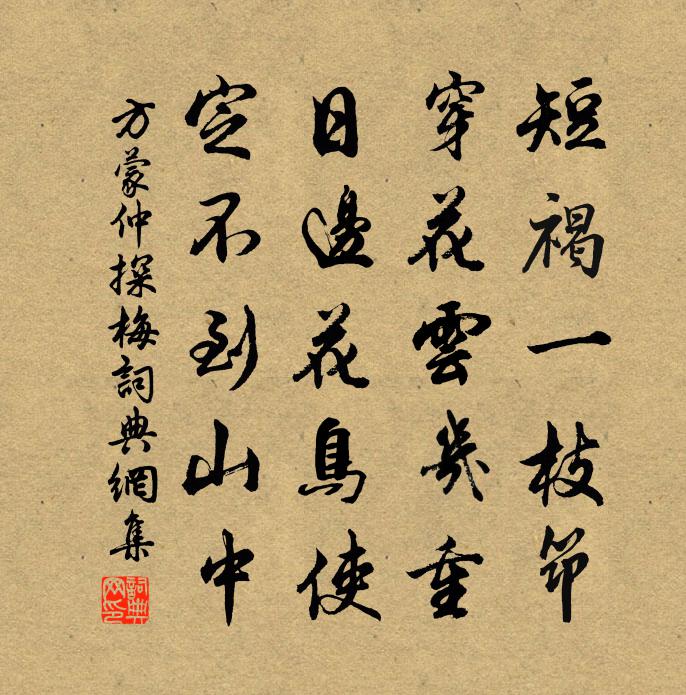 短褐一枝筇
穿花雲幾重
日邊花鳥使
定不到山中
方蒙仲探梅詞典網集
詞典網印